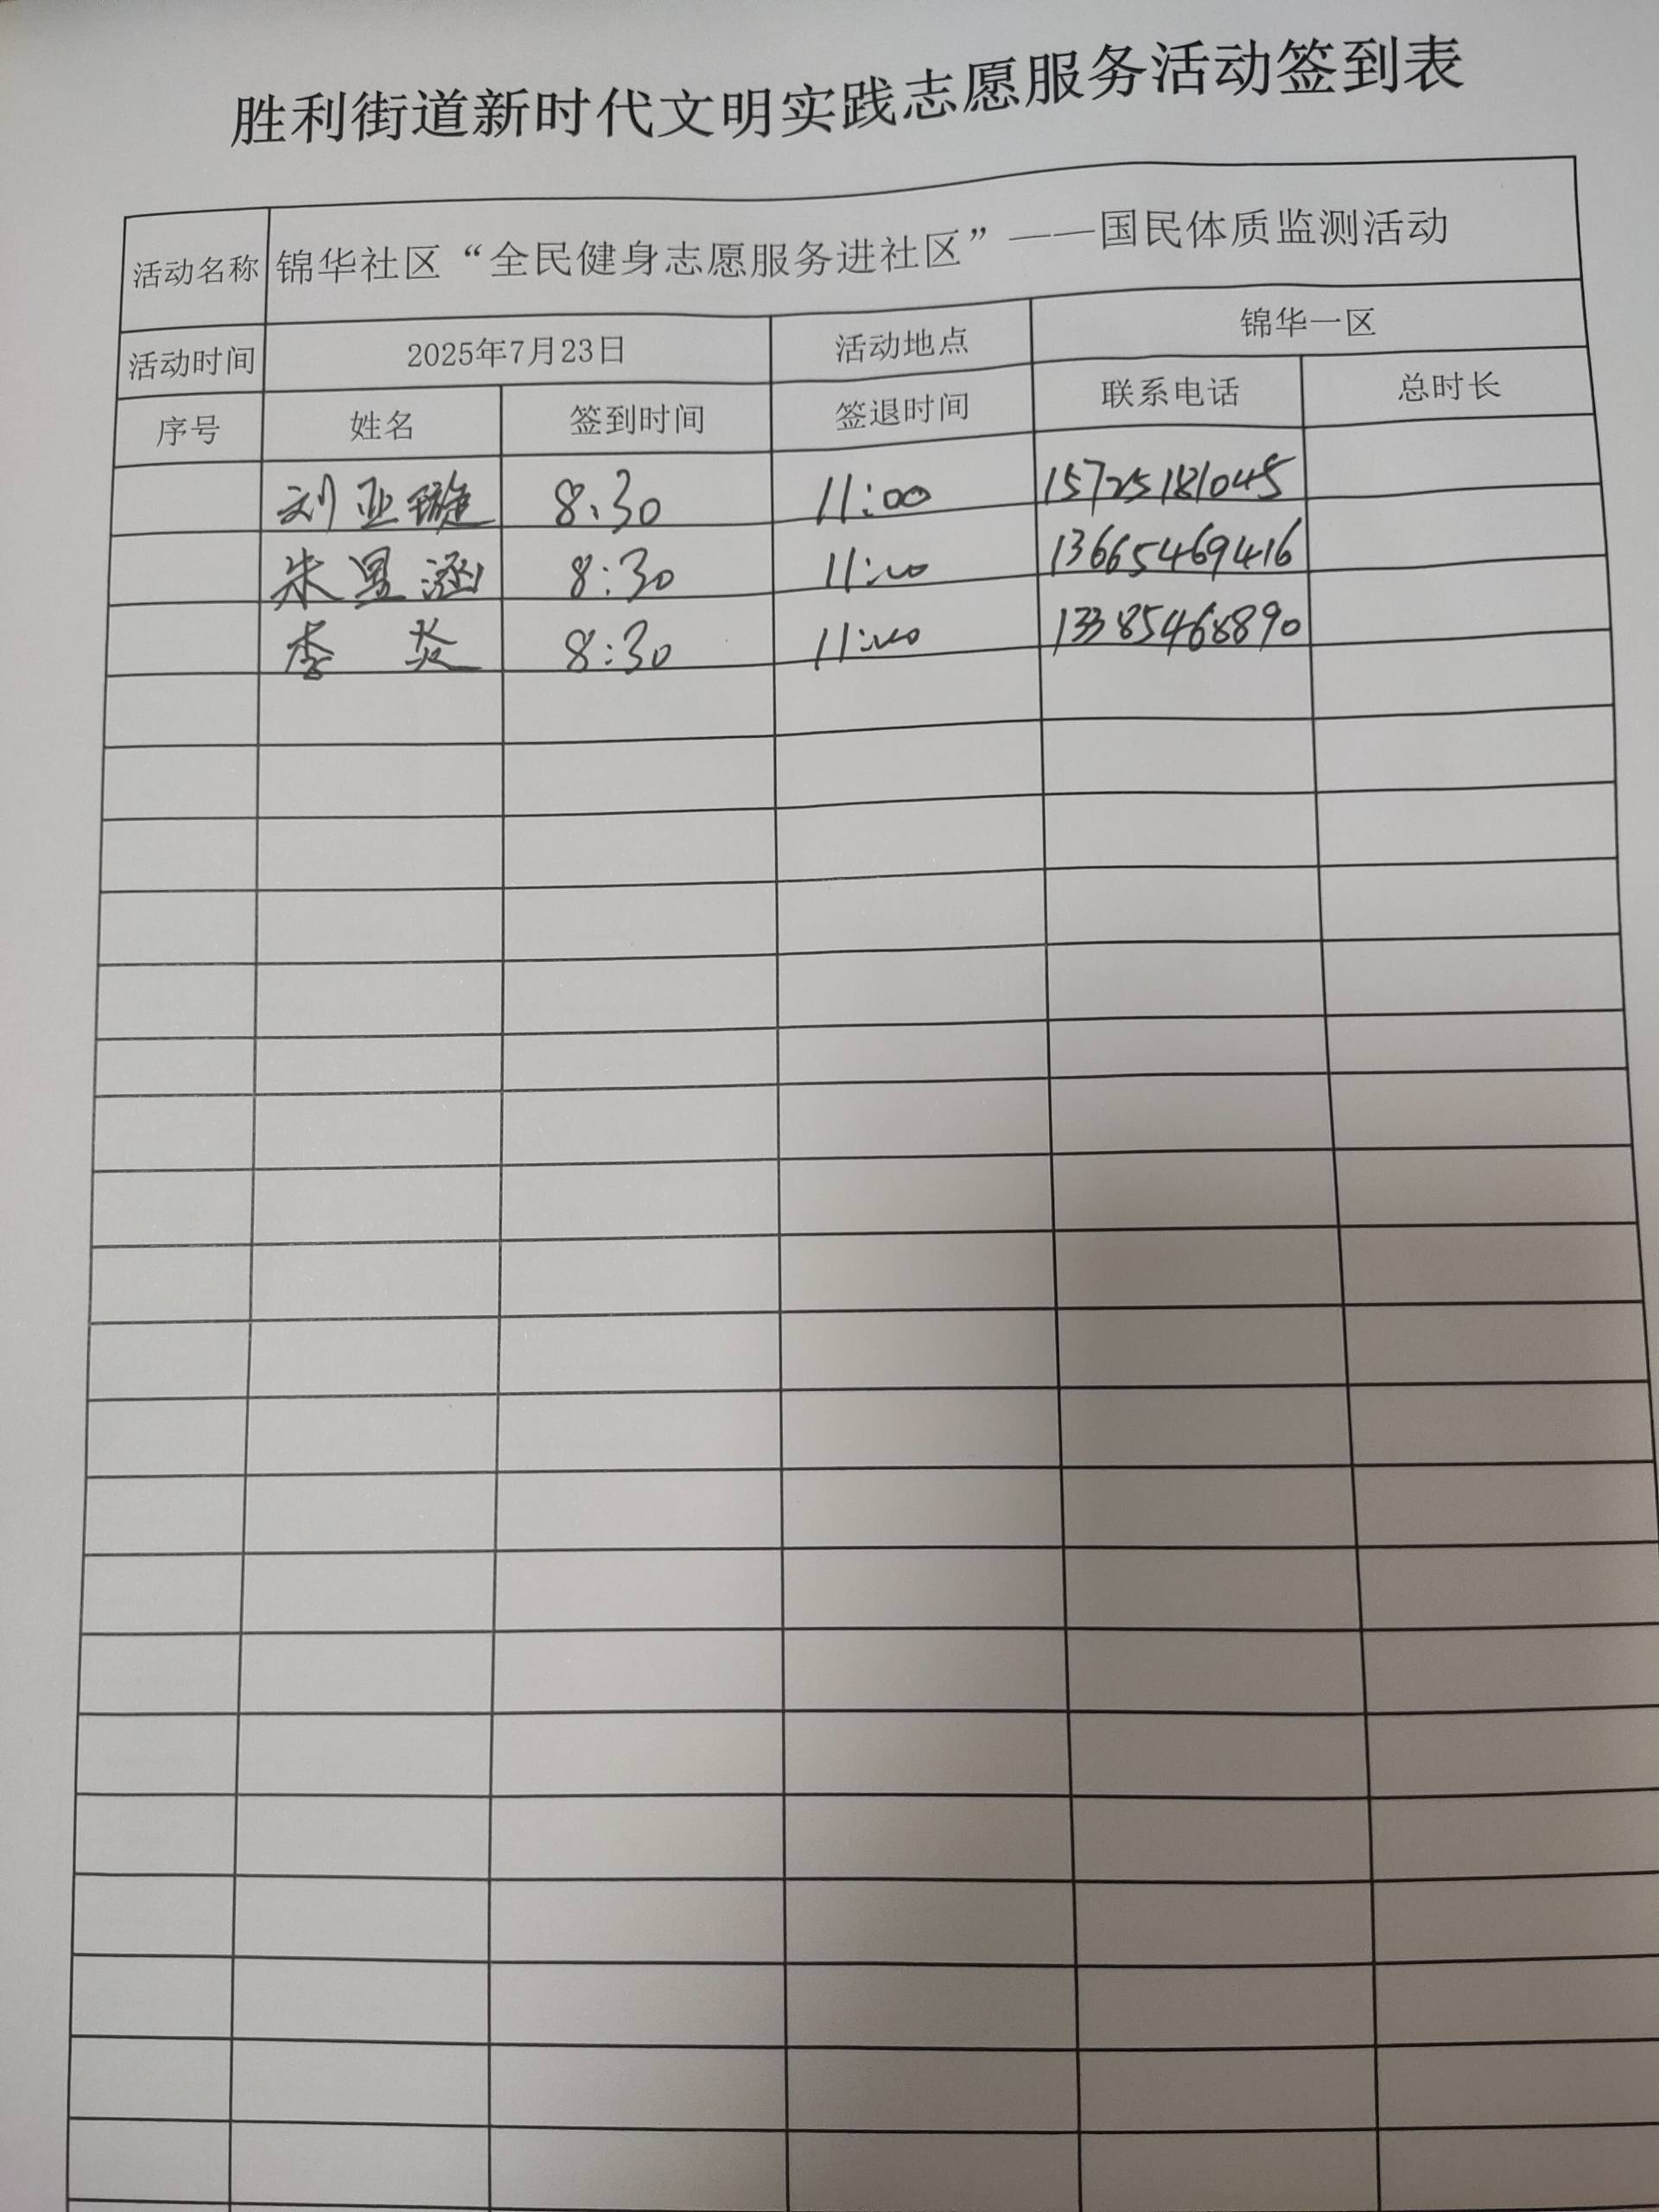 胜利街道新时代文明实践志愿服务活动签到表
活动名称 锦华社区“全民健身志愿服务进社区”——国民体质监测活动
活动时间 2025年7月23日 活动地点 锦华一区
序号 姓名 签到时间 签退时间 联系电话 总时长
刘亚璇 8:30 11:00 15725181045
朱昱涵 8:30 11:00 13665469416
李炎 8:30 11:00 13385468890